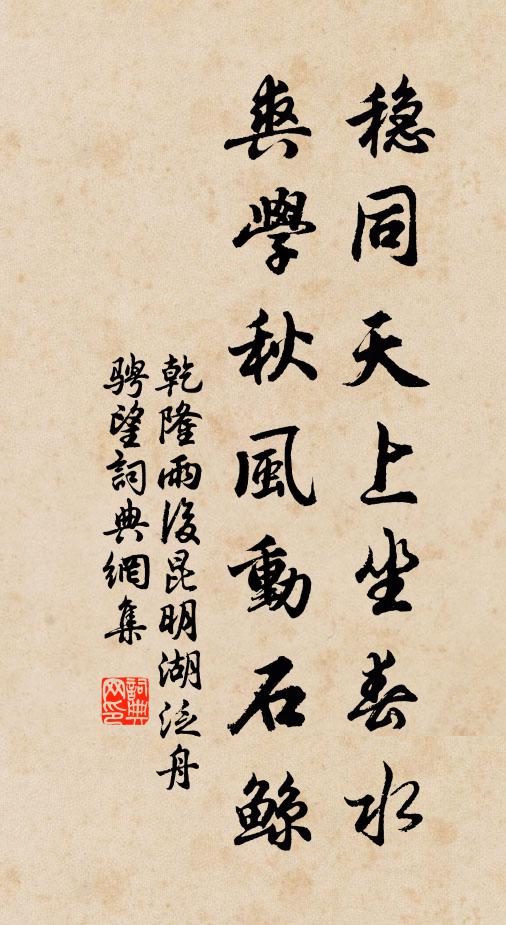 穏同天上坐春水
爽學秋風動石鯨
乾隆雨後昆明湖泛舟
騁望詞典網集
詞典
网印